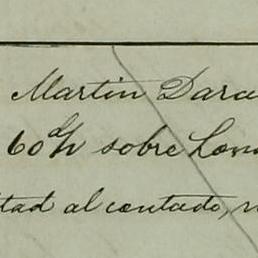 Martin Darc
60 d/v sobre Lon
tad al contado,